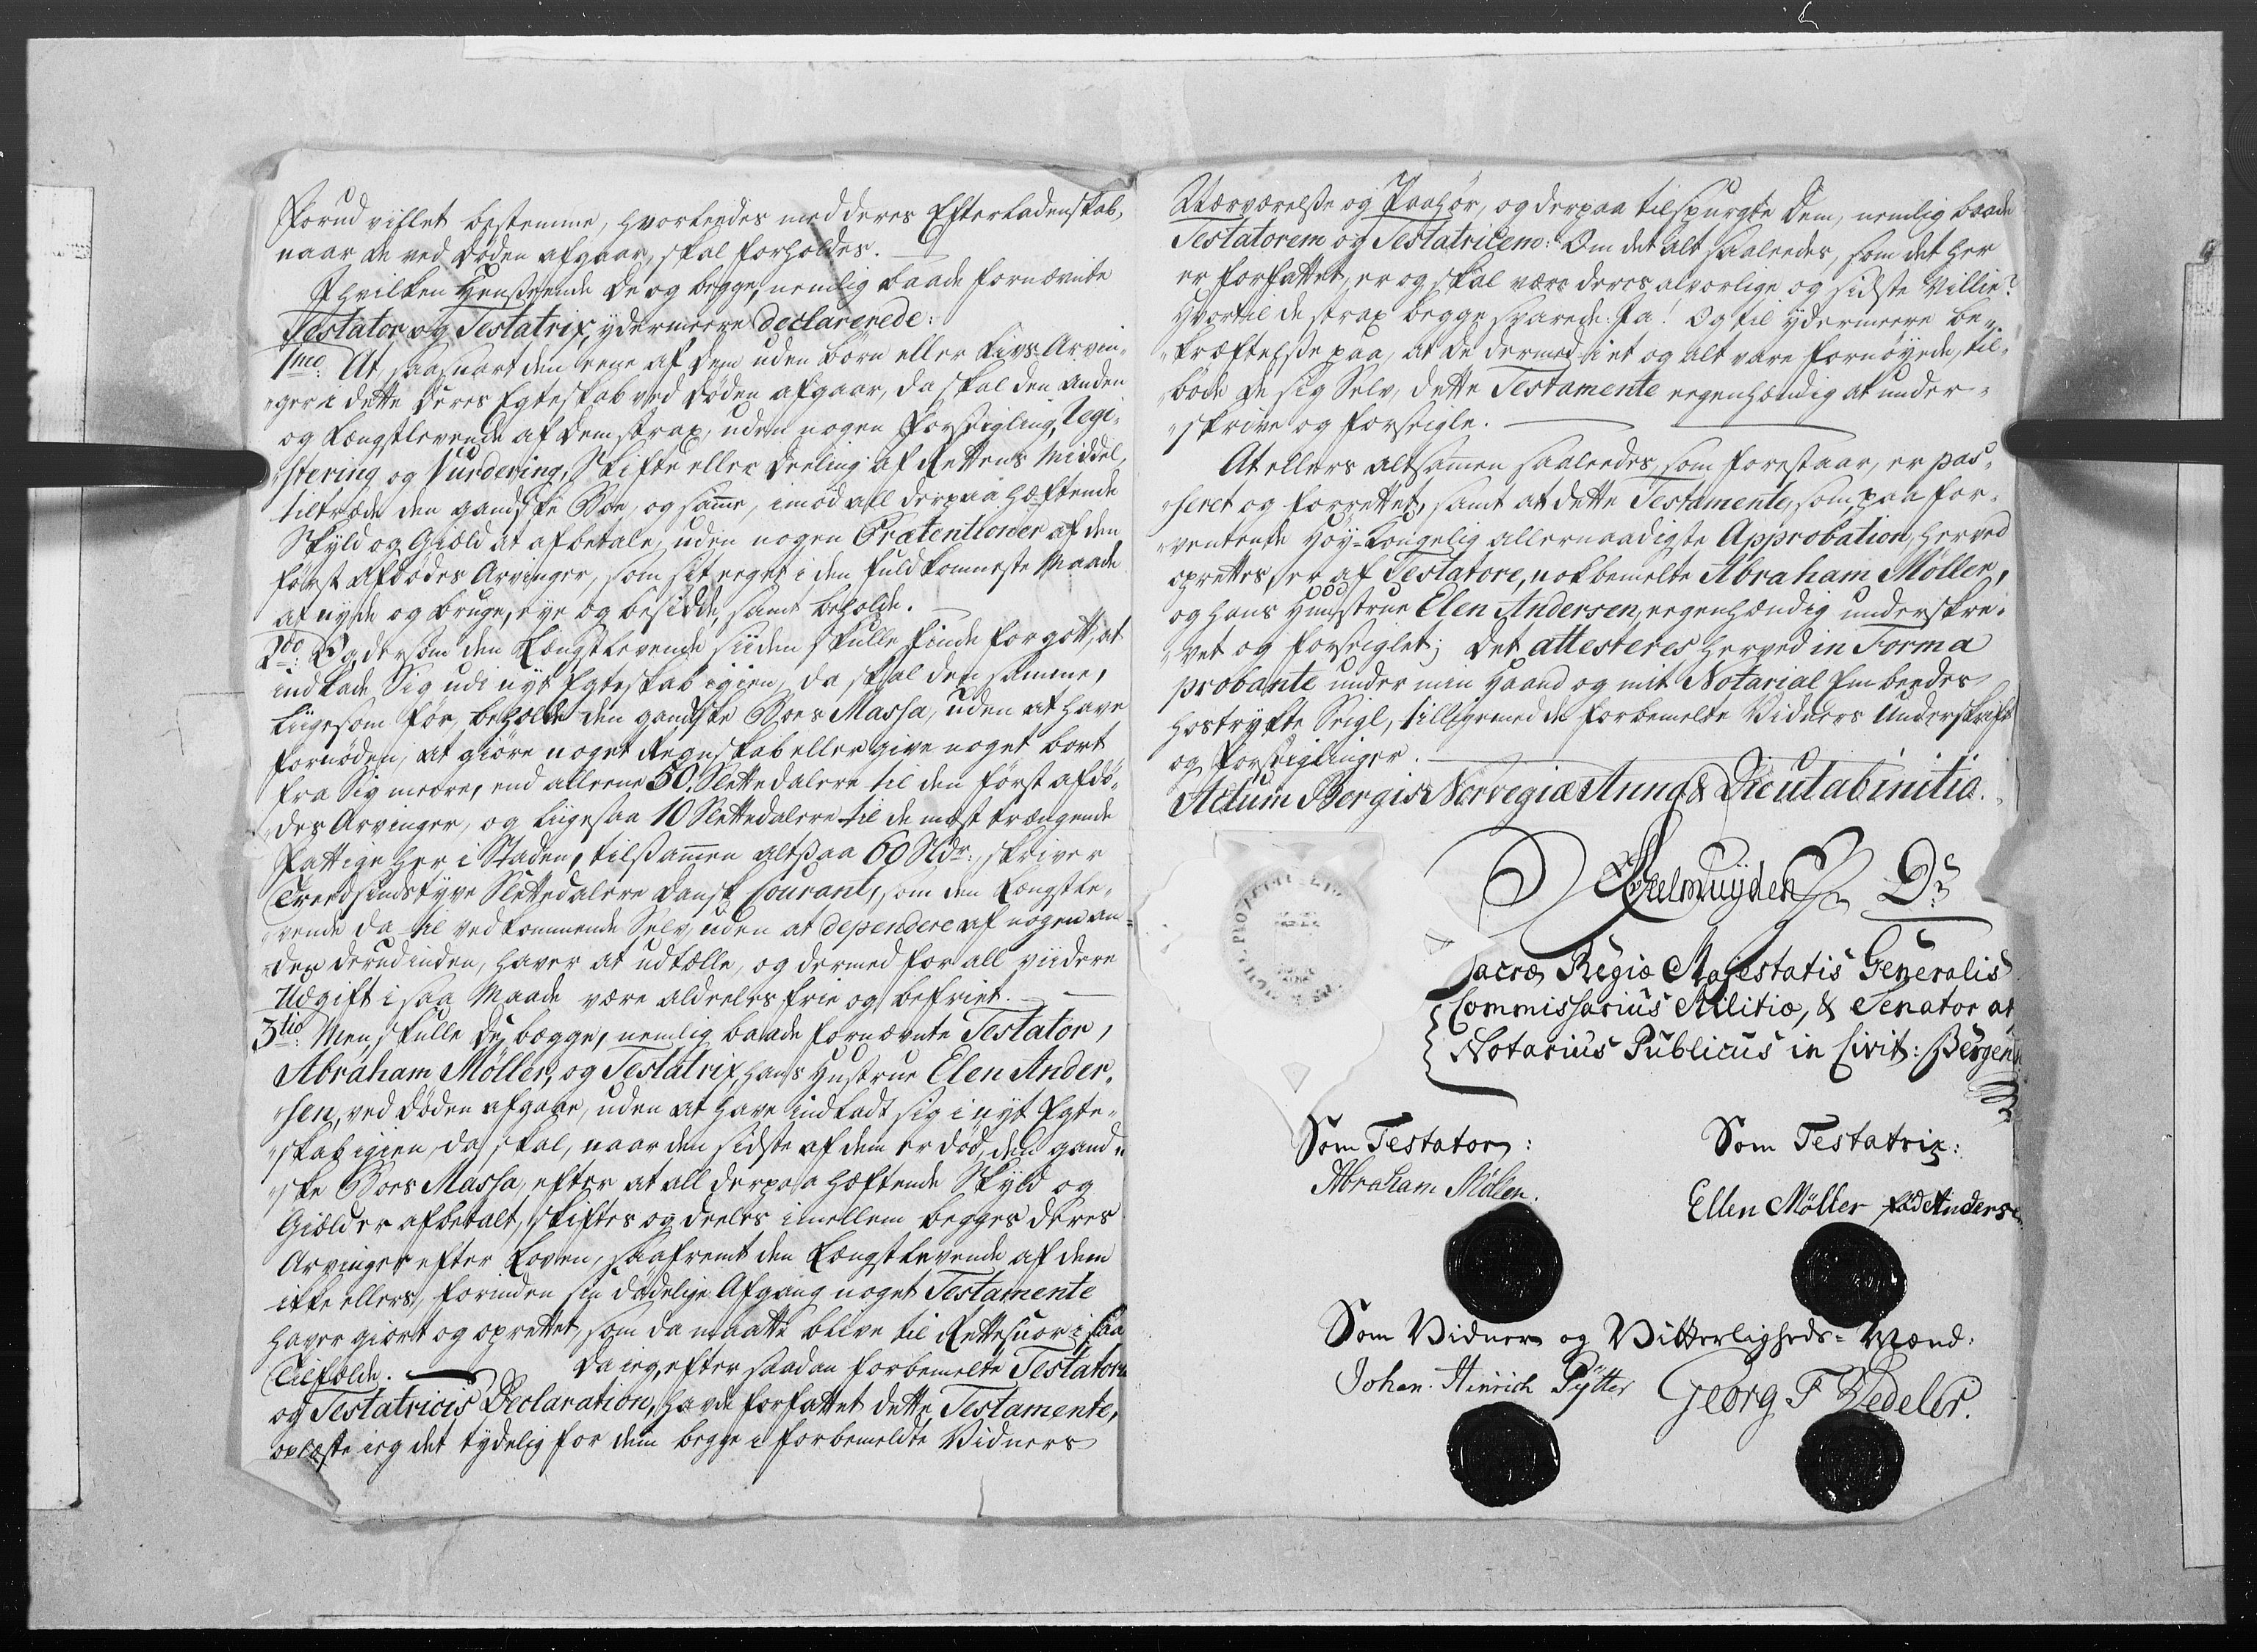 forud villet bestemme, hvorledes med deres Efterladenskab,
naar de ved Døden afgaar, skal forholdes.
I hvilken Henseende De og begge, nemlig baade fornævnte
Testator og Testatrix, ydermeere declarerede:
1mo: At, saasnart den eene af Dem uden Børn eller Livs-Arvin-
ger i dette Deres Egteskab ved Døden afgaar, da skal den anden
og Længstlevende af Dem strax, uden nogen Forseigling, Regi-
stering og Vurdering, Skifte eller Deeling af Rettens Middel,
tiltræde den gandske Boe, og samme, imod all derpaa hæftende
Skyld og Giæld at afbetale, uden nogen Prætentioner af den
først Afdødes Arvinger, som sit eeget i den fuldkomneste Maade
at nyde og bruge, eye og besidde, samt beholde.
2do: Og dersom den Længstlevende siiden skulle finde for gott, at
indlade Sig udi nyt Egteskab igien, da skal den samme,
liigesom før, beholde den gandske Boes Massa, uden at have
fornøden, at giøre noget Regnskab eller give noget bort
fra Sig meere, end alleene 50. Slettedalere til den først afdø-
des Arvinger, og liigesaa 10 Slettedalere til de mest trængende
Fattige her i Staden, tilsammen altsaa 60 Sldr:, skriver
Treedsindstyve Slettedalere Dansk Courant, som den Længstle-
vende da til vedkommende Selv, uden at dependere af nogen an-
den derudinden, haver at udtælle, og dermed for all viidere
Udgift i saa Maade være aldeeles frie og befriet.
3tio: Men, skulle De begge, nemlig baade fornævnte Testator,
Abraham Möller, og Testatrix, hans Hustrue Elen Ander-
sen, ved Døden afgaae, uden at have indladt sig i nyt Egte-
skab igien, da skal, naar den sidste af dem er død, den gand-
ske Boes Massa, efter at all derpaa hæftende Skyld og
Giæld er afbetalt, skiftes og deeles imellem begges deres
Arvinger efter Loven, saafremt den Længstlevende af dem
ikke ellers, forinden sin dødelige Afgang noget Testamente
haver giort og oprettet, som da maatte blive til Rettesnor i saa
Tilfælde. Da ieg, efter saadan forbemelte Testatoris
og Testatricis Declaration, havde forfattet dette Testamente,
oplæste ieg det tydelig for dem begge i forbemeldte Vidners
Nærværelse og Paahør, og derpaa tilspurgte Dem, nemlig baade
Testatorem og Testatricem: Om det alt saaleedes, som det her
er forfattet, er og skal være deres alvorlige og sidste Villie?
Hvortil de strax begge svarede Ja! Og til ydermeere be-
kræftelse paa, at de dermed i et og alt vare fornøyede, til-
bøde de sig Selv, dette Testamente eegenhændig at under-
skrive og forseigle.
At ellers altsammen saaleedes, som forestaar, er pas-
seret og forrettet, samt at dette Testamente, som, paa for-
ventende Høy-Kongelig allernaadigste Approbation, herved
oprettes, er af Testatore, nokbemelte Abraham Möller,
og hans Huusstrue Elen Andersen, eegenhændig underskre-
vet og forseiglet; Det attesteres herved in Forma
probante under min Haand og mit Notarial Embeedes
hostrykte Seigl, tilligemed de forbemelte Vidners Underskrift
og Forseiglinger.
Actum Bergis Norvegiæ Anno & Die ut ab initio.
Sacræ Regiæ Majestatis Generalis
Commissarius Militiæ, & Senator at
Notarius Publicus in Civit: Bergens:
Som Testator:
Som Testatrix:
Abraham Möller.
Ellen Möller fød Andersen
Som Vidner og Vitterligheds-Mænd:
Johan Hinrich Pÿtter
Georg F Wedeler.